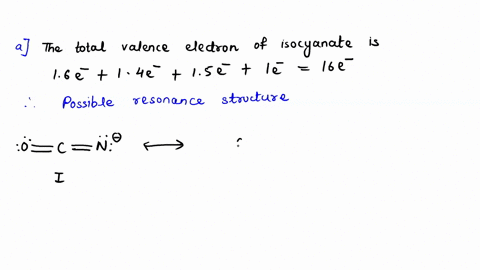 a] The total valence electron of isocyanate is
1.6e⁻ + 1.4e⁻ + 1.5e⁻ + 1e⁻ = 16e⁻
∴ Possible resonance structure
:Ö=C=N̈:⊖ ⟷ ?
I